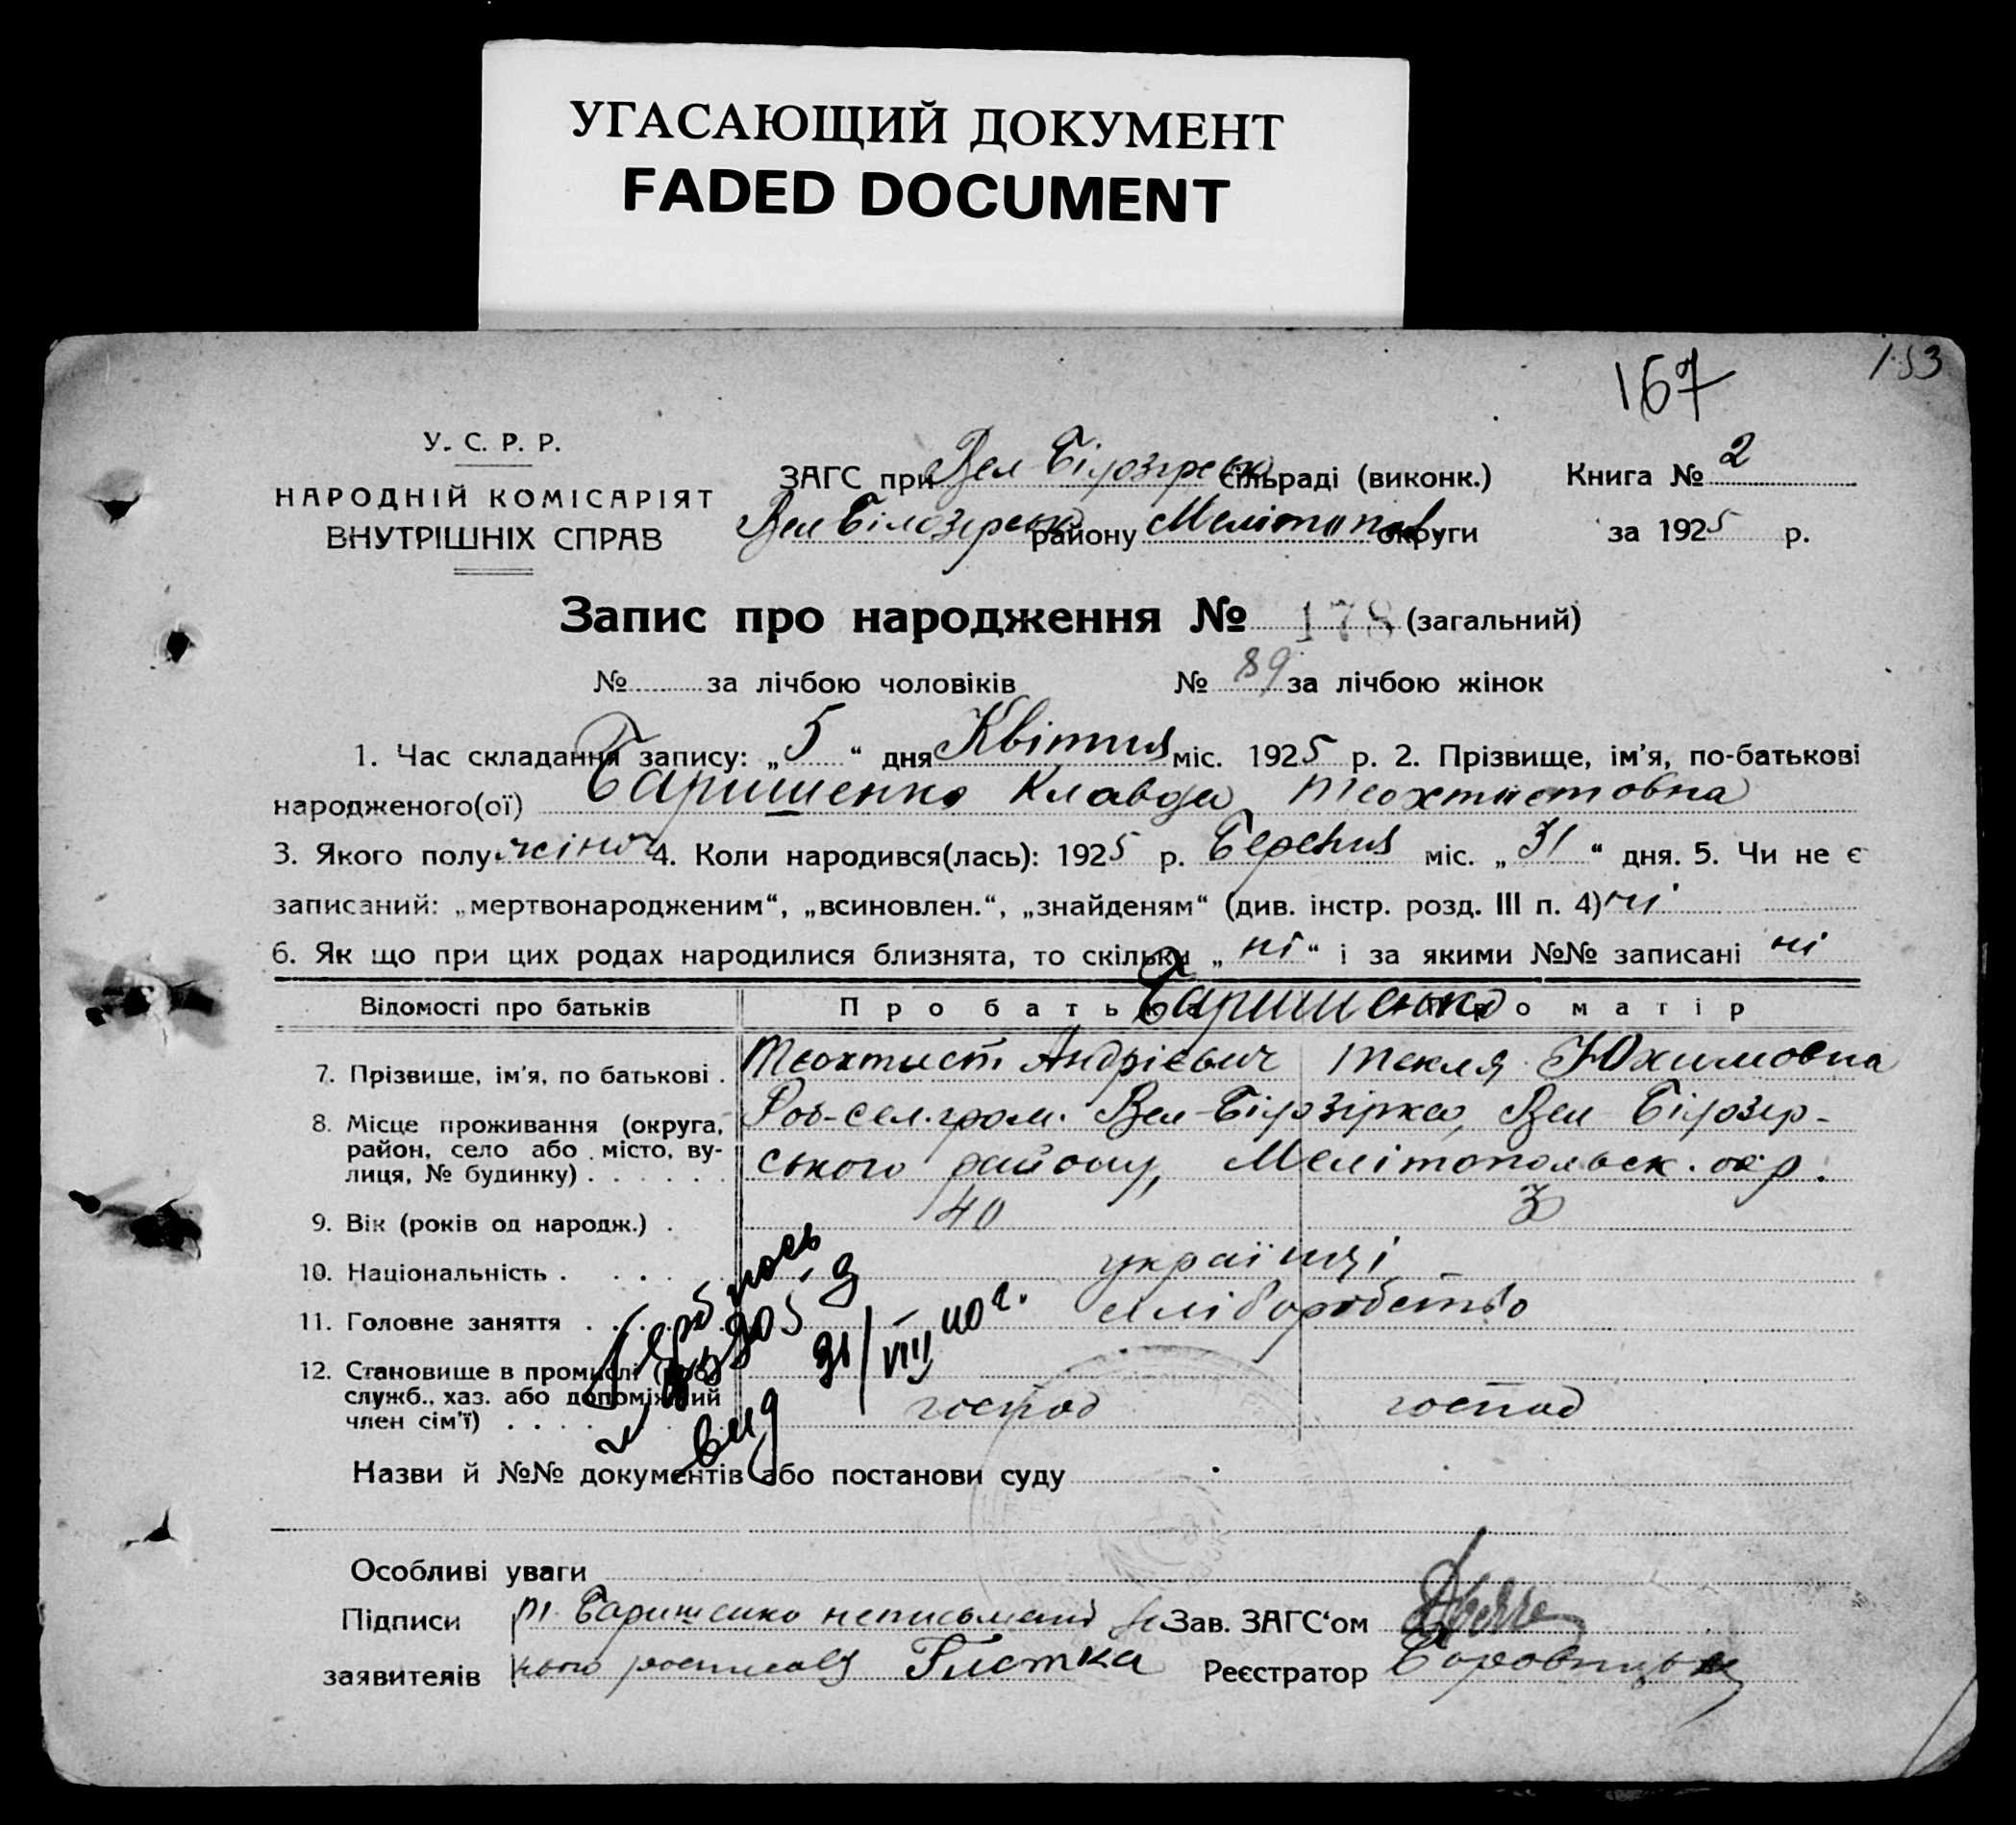 УГАСАЮЩИЙ ДОКУМЕНТ
FADED DOCUMENT
153
167
У. С. Р. Р.
НАРОДНІЙ КОМІСАРІЯТ
ВНУТРІШНІХ СПРАВ
ЗАГС при Вел-Білозірськ сільраді (виконк.) Книга № 2
Вел Білозерськ району Мелітопол. округи за 1925 р.
Запис про народження № 178 (загальний)
№ за лічбою чоловіків № 89 за лічбою жінок
1. Час складання запису: „5“ дня Квітня міс. 1925 р. 2. Прізвище, ім’я, по-батькові
народженого(ої) Баришенко Клавдия Теохтистовна
3. Якого полу жіноч 4. Коли народився(лась): 1925 р. Березня міс. „31“ дня. 5. Чи не є
записаний: „мертвонародженим“, „всиновлен.“, „знайденям“ (див. інстр. розд. III п. 4) ні
6. Як що при цих родах народилися близнята, то скільки „ні“ і за якими №№ записані ні
Відомості про батьків Про батька Про матір
Баришенко
7. Прізвище, ім’я, по батькові . Теохтист Андрієвич Текля Юхимовна
8. Місце проживання (округа, район, село або місто, вулиця, № будинку) . . . . . . Вел-Білозірка, Вел Білозер-
ського району, Мелітопольск. окр.
9. Вік (років од народж.) . 40 30
10. Національність . . . . . українці
11. Головне заняття . . . . хліборобство
12. Становище в промислі (роб., служб., хаз. або допоміжний член сім’ї) . . . . . господ господ
вид 31/VIII 40 г.
Назви й №№ документів або постанови суду
Особливі уваги
Підписи Баришенко неписьмений Зав. ЗАГС‘ом
заявителів росписавя Глєтка Реєстратор